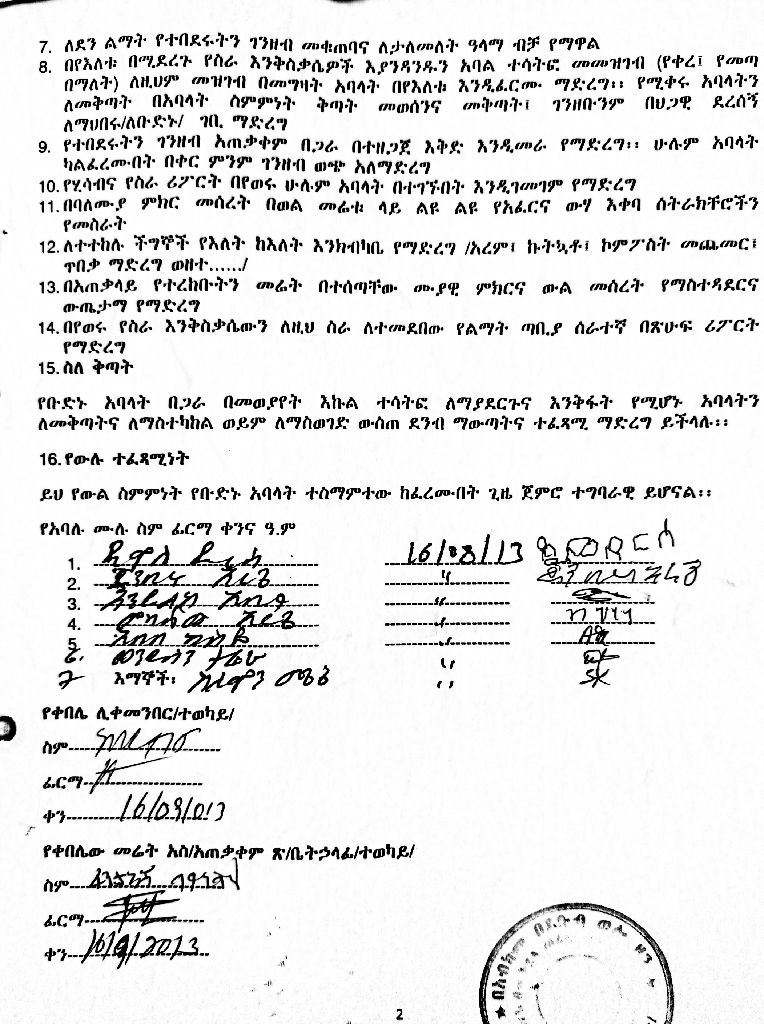 7. ለደን ልማት የተበደሩትን ገንዘብ መቁጠባና ለታለመለት ዓላማ ብቻ የማዋል
8. በየእለቱ በሚደረጉ የስራ እንቅስቃሴዎች እያንዳንዱን አባል ተሳትፎ መመዝገብ (የቀረ፤ የመጣ
በማለት) ለዚህም መዝገብ በመግዛት አባላት በየእለቱ እንዲፈርሙ ማድረግ፡፡ የሚቀሩ አባላትን
ለመቅጣት በአባላት ስምምነት ቅጣት መወሰንና መቅጣት፤ ገንዘቡንም በህጋዊ ደረሰኝ
ለማህበሩ/ለቡድኑ/ ገቢ ማድረግ
9. የተበደሩትን ገንዘብ አጠቃቀም በጋራ በተዘጋጀ እቅድ እንዲመራ የማድረግ፡፡ ሁሉም አባላት
ካልፈረሙበት በቀር ምንም ገንዘብ ወጭ አለማድረግ
10. የሂሳብና የስራ ሪፖርት በየወሩ ሁሉም አባላት በተገኙበት እንዲገመገም የማድረግ
11. በባለሙያ ምክር መሰረት በወል መሬቱ ላይ ልዩ ልዩ የአፈርና ውሃ እቀባ ሰትራክቸሮችን
የመስራት
12. ለተተከሉ ችግኞች የእለት ከእለት እንክብካቤ የማድረግ /አረም፤ ኩትኳቶ፤ ኮምፖስት መጨመር፤
ጥበቃ ማድረግ ወዘተ....../
13. በአጠቃላይ የተረከቡትን መሬት በተሰጣቸው ሙያዊ ምክርና ውል መሰረት የማስተዳደርና
ውጤታማ የማድረግ
14. በየወሩ የስራ እንቅስቃሴውን ለዚህ ስራ ለተመደበው የልማት ጣቢያ ሰራተኛ በጽሁፍ ሪፖርት
የማድረግ
15. ስለ ቅጣት
የቡድኑ አባላት በጋራ በመወያየት እኩል ተሳትፎ ለማያደርጉና እንቅፋት የሚሆኑ አባላትን
ለመቅጣትና ለማስተካከል ወይም ለማስወገድ ውስጠ ደንብ ማውጣትና ተፈጻሚ ማድረግ ይችላሉ፡፡
16. የውሉ ተፈጻሚነት
ይህ የውል ስምምነት የቡድኑ አባላት ተስማምተው ከፈረሙበት ጊዜ ጀምሮ ተግባራዊ ይሆናል፡፡
የአባሉ ሙሉ ስም ፊርማ ቀንና ዓ.ም
1. 16/08/13
2. "
3. "
4. "
5. "
6. "
7 እማኞች፡ "
የቀበሌ ሊቀመንበር/ተወካይ/
ስም
ፊርማ
ቀን 16/09/013
የቀበሌው መሬት አስ/አጠቃቀም ጽ/ቤት ኃላፊ/ተወካይ/
ስም
ፊርማ
ቀን 16/9/2013
በአብክመ በደቡብ ወሎ ዞን
2